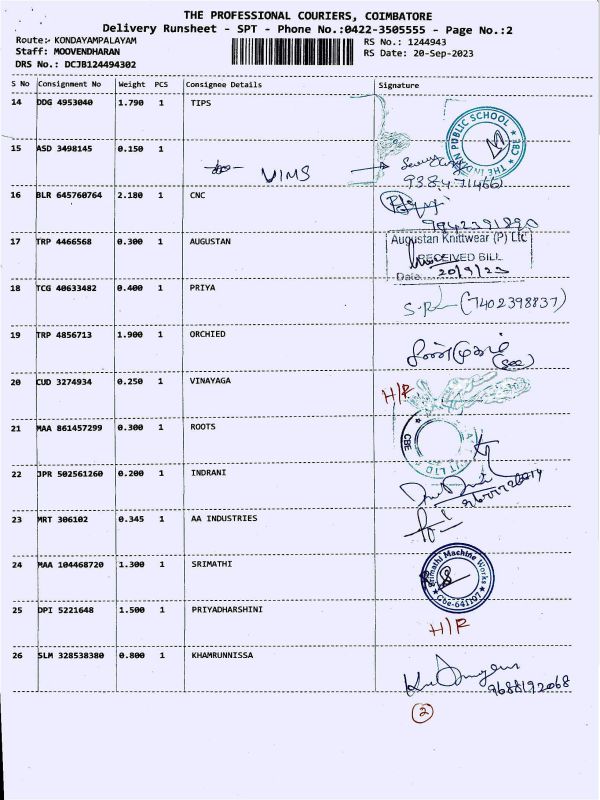 THE PROFESSIONAL COURIERS, COIMBATORE
Delivery Runsheet - SPT - Phone No.:0422-3505555 - Page No.:2
Route:- KONDAYAMPALAYAM RS No.: 1244943
Staff: MOOVENDHARAN RS Date: 20-Sep-2023
DRS No.: DCJB124494302
S No Consignment No Weight PCS Consignee Details Signature
14 DDG 4953040 1.790 1 TIPS
THE INDIAN PUBLIC SCHOOL CBE
15 ASD 3498145 0.150 1
VIMS
16 BLR 645760764 2.180 1 CNC
17 TRP 4466568 0.300 1 AUGUSTAN
Augustan Knittwear (P) Ltd
RECEIVED BILL
Date 20/9/23
18 TCG 40633482 0.400 1 PRIYA
(7402398837)
19 TRP 4856713 1.900 1 ORCHIED
20 CUD 3274934 0.250 1 VINAYAGA
H/R
21 MAA 861457299 0.300 1 ROOTS
CBE
22 JPR 502561260 0.200 1 INDRANI
23 MRT 306102 0.345 1 AA INDUSTRIES
24 MAA 104468720 1.300 1 SRIMATHI
Srimathi Machine Works
Cbe-641107
25 DPI 5221648 1.500 1 PRIYADHARSHINI
H/R
26 SLM 328538380 0.800 1 KHAMRUNNISSA
9688192068
2